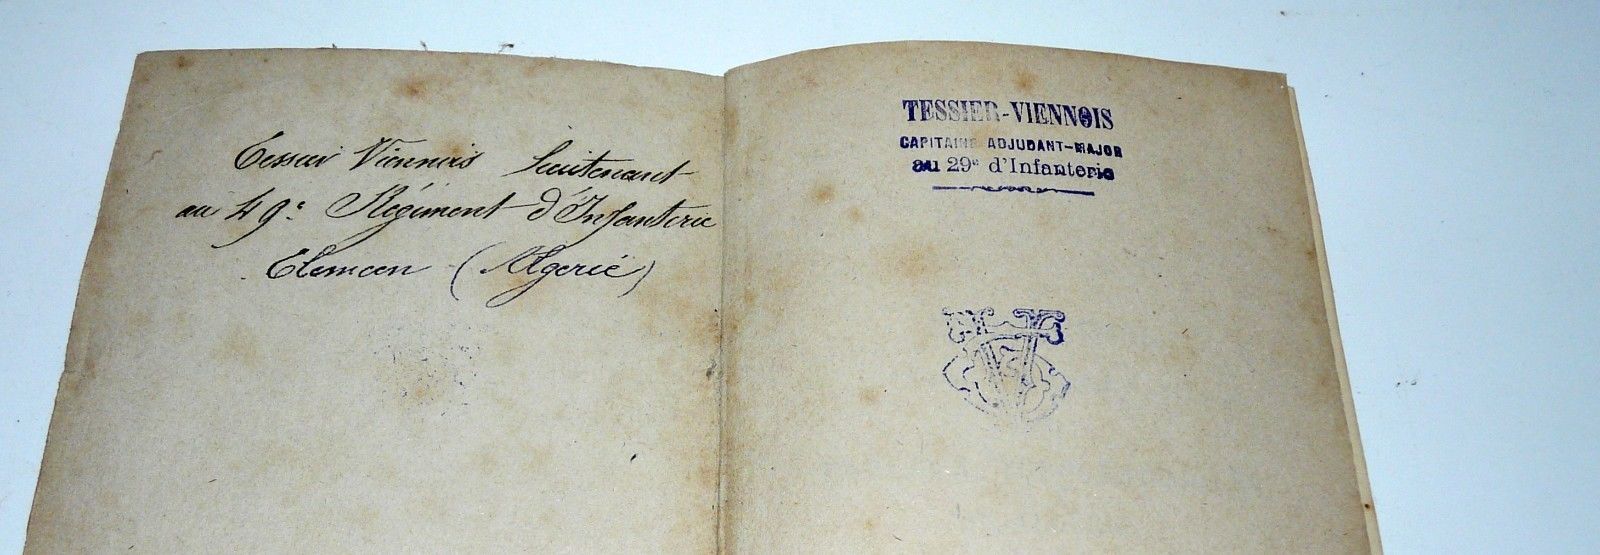 Tessier Viennois Lieutenant
au 49e Régiment d'Infanterie
Tlemcen (Algerie)
TESSIER-VIENNOIS
CAPITAINE ADJUDANT-MAJOR
au 29e d'Infanterie